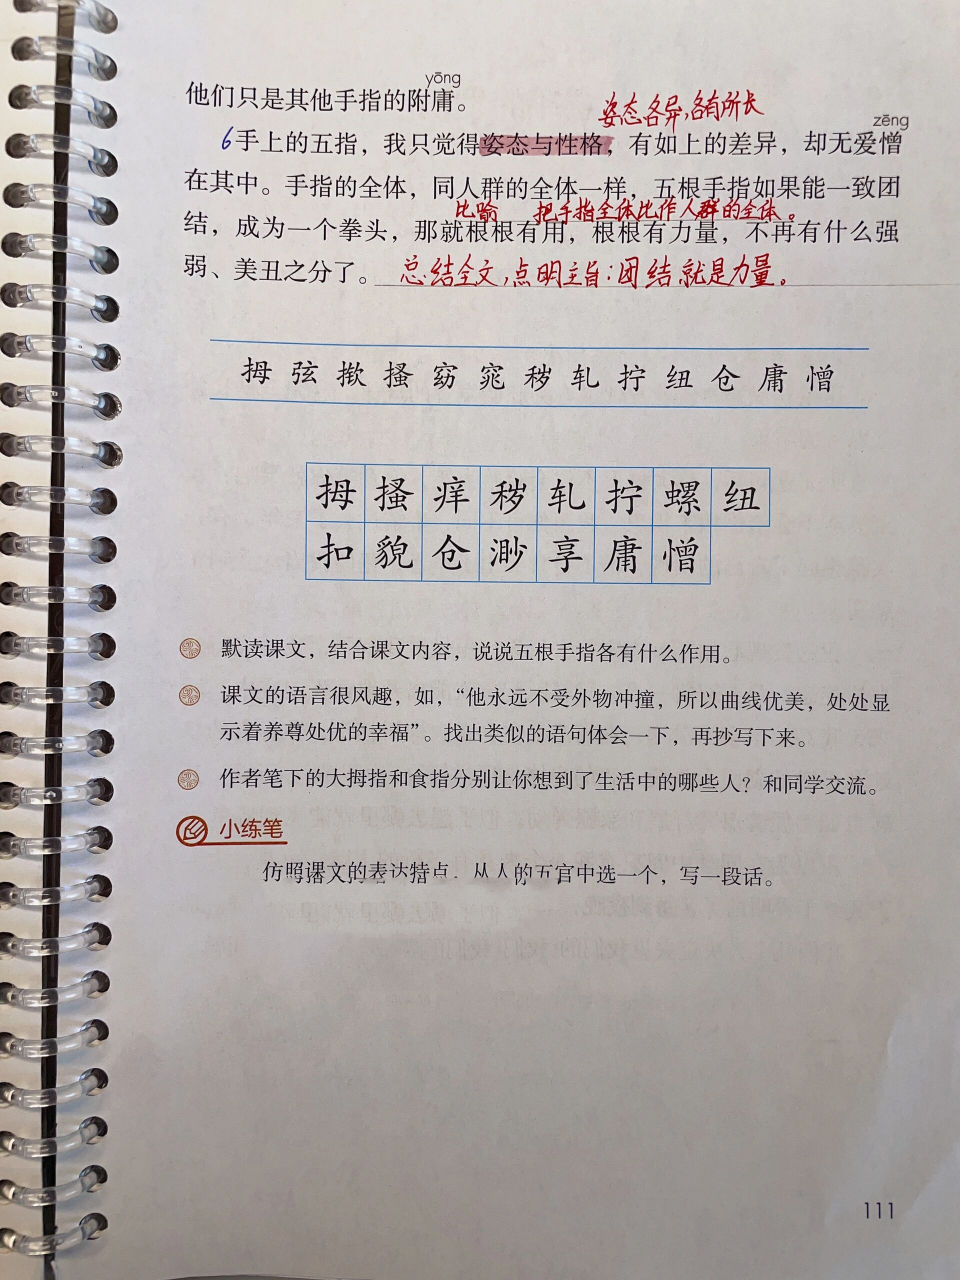 yōng
他们只是其他手指的附庸。
姿态各异,各有所长
zēng
6手上的五指，我只觉得姿态与性格，有如上的差异，却无爱憎
在其中。手指的全体，同人群的全体一样，五根手指如果能一致团
比喻 把手指全体比作人群的全体。
结，成为一个拳头，那就根根有用，根根有力量，不再有什么强
弱、美丑之分了。 总结全文,点明主旨:团结就是力量。
拇 弦 揿 搔 窈 窕 秽 轧 拧 纽 仓 庸 憎
拇 搔 痒 秽 轧 拧 螺 纽
扣 貌 仓 渺 享 庸 憎
默读课文，结合课文内容，说说五根手指各有什么作用。
课文的语言很风趣，如，“他永远不受外物冲撞，所以曲线优美，处处显
示着养尊处优的幸福”。找出类似的语句体会一下，再抄写下来。
作者笔下的大拇指和食指分别让你想到了生活中的哪些人？和同学交流。
小练笔
仿照课文的表达特点，从人的五官中选一个，写一段话。
111